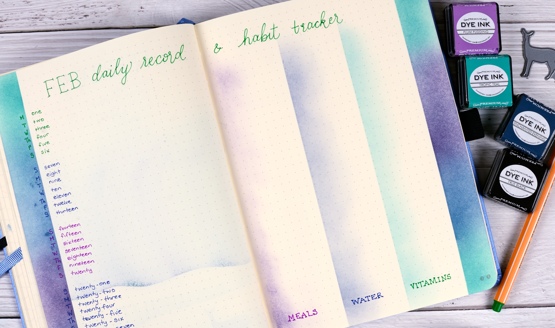 FEB daily record & habit tracker
one
two
three
four
five
six
seven
eight
nine
ten
eleven
twelve
thirteen
fourteen
fifteen
sixteen
seventeen
eighteen
nineteen
twenty
twenty-one
twenty-two
twenty-three
twenty-four
twenty-five
twenty-six
MEALS
WATER
VITAMINS
DYE INK
DYE INK
DYE INK
DYE INK